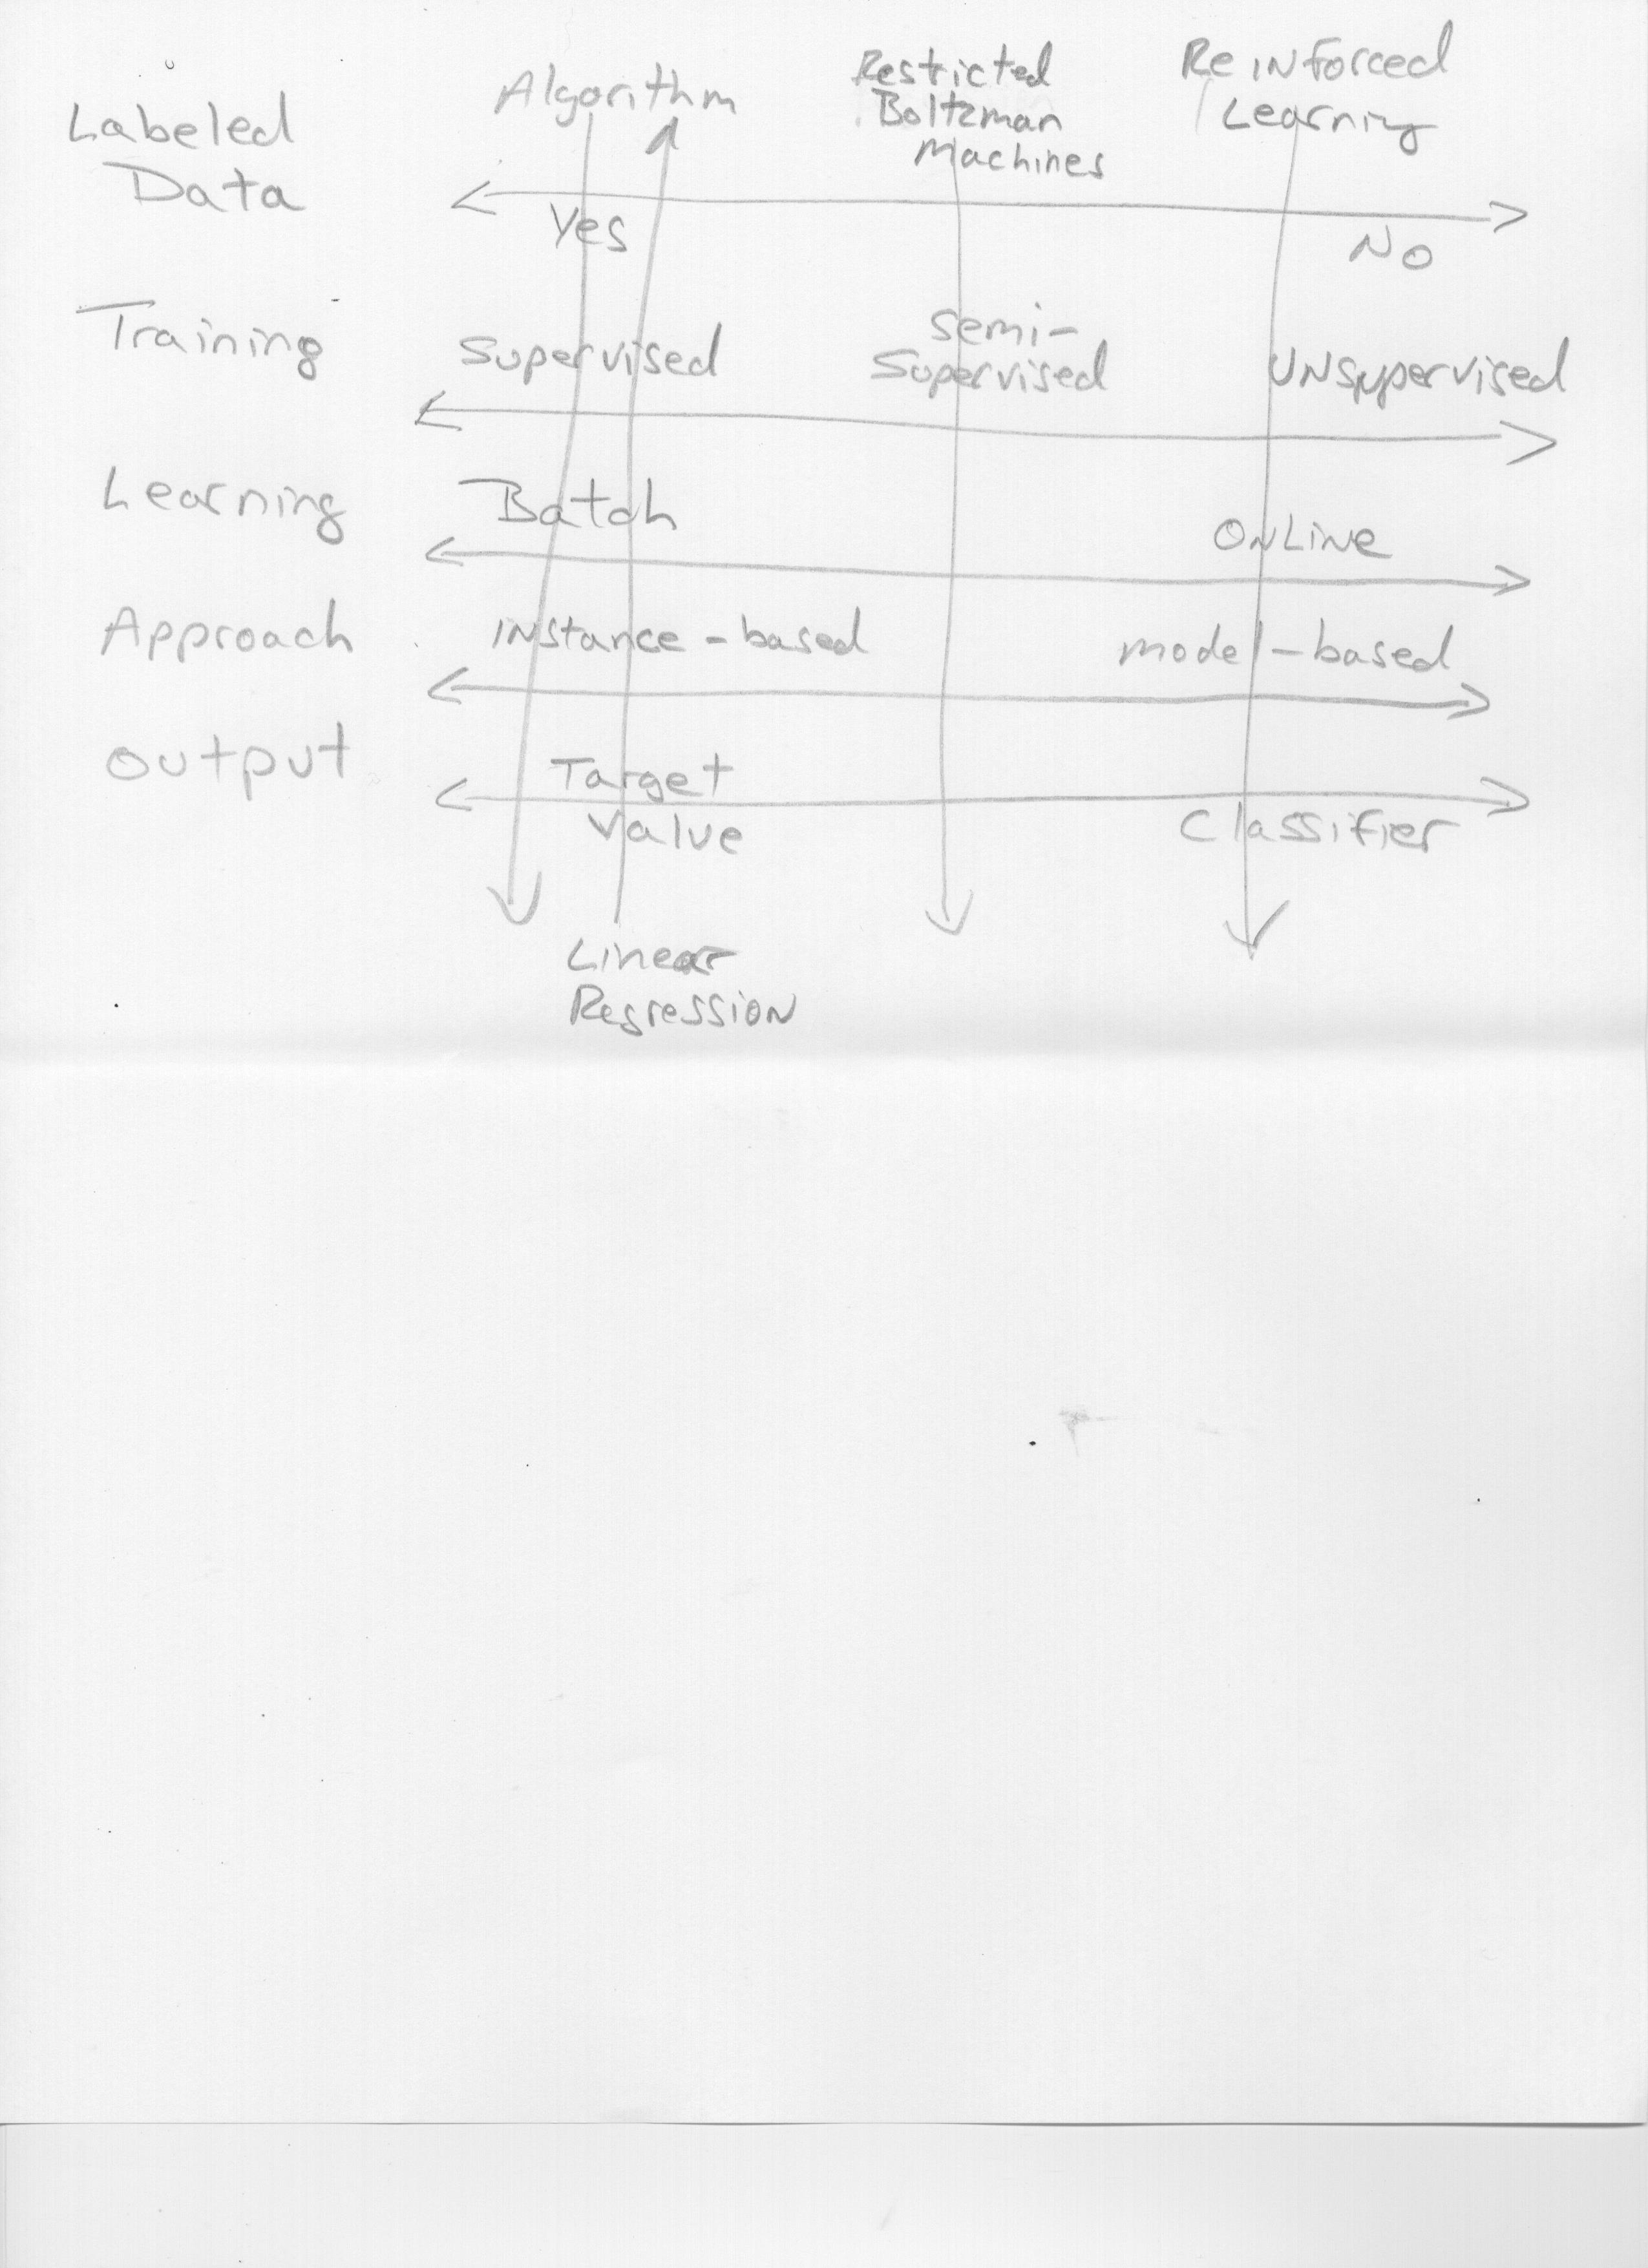 Algorithm
Resticted
Boltzman
Machines
ReINforced
Learning
Labeled
Data
Yes
No
Training
Supervised
Semi-
Supervised
UNsupervised
Learning
Batch
ONLINE
Approach
INstance-based
model-based
Output
Target
Value
Classifier
Linear
RegressioN